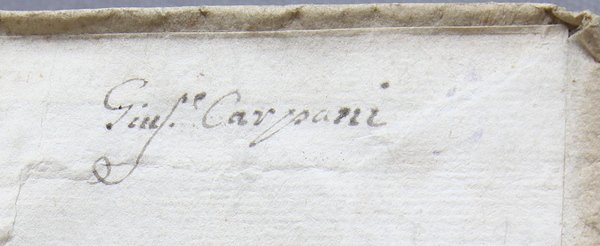 Giuſ.e Carpani